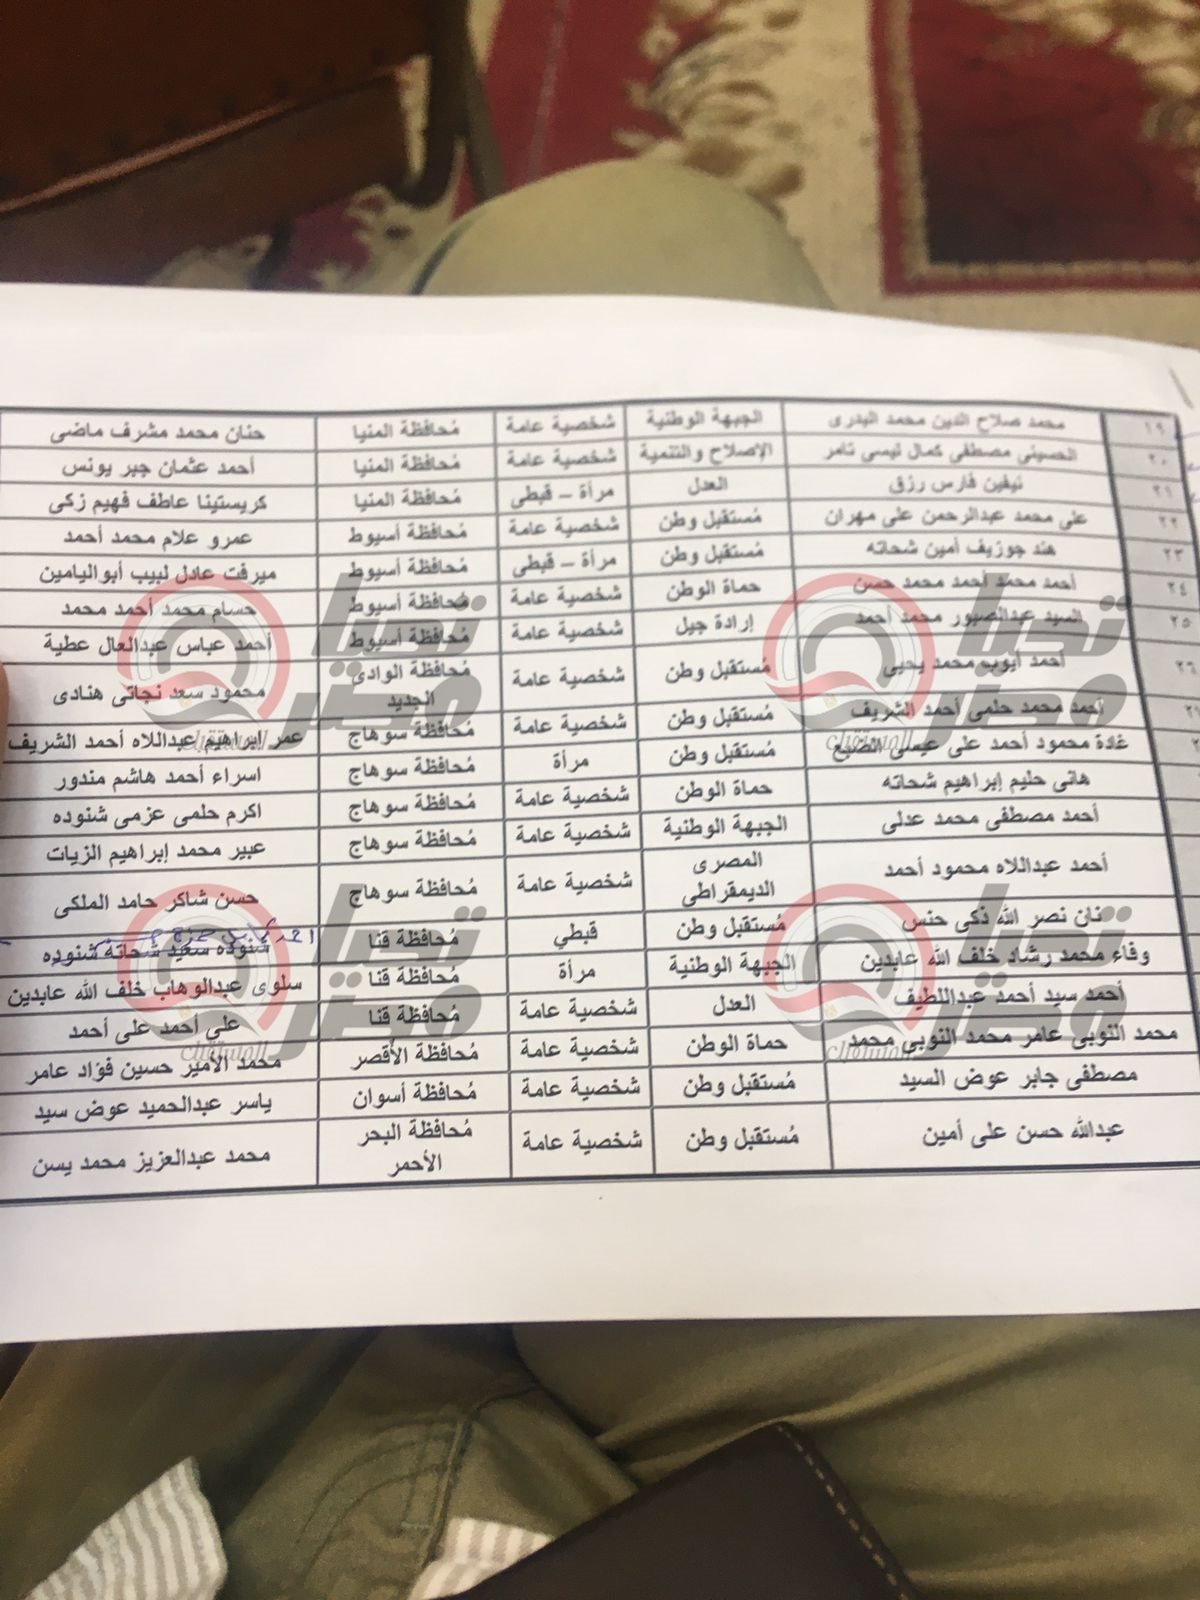 ١٩ محمد صلاح الدين محمد البدرى الجبهة الوطنية شخصية عامة مُحافظة المنيا حنان محمد مشرف ماضى
٢٠ الحسينى مصطفى كمال ليسى تامر الإصلاح والتنمية شخصية عامة مُحافظة المنيا أحمد عثمان جبر يونس
٢١ نيفين فارس رزق العدل مرأة – قبطى مُحافظة المنيا كريستينا عاطف فهيم زكى
٢٢ على محمد عبدالرحمن على مهران مُستقبل وطن شخصية عامة مُحافظة أسيوط عمرو علام محمد أحمد
٢٣ هند جوزيف أمين شحاته مُستقبل وطن مرأة – قبطى مُحافظة أسيوط ميرفت عادل لبيب أبواليامين
٢٤ أحمد محمد أحمد محمد حسن حماة الوطن شخصية عامة مُحافظة أسيوط حسام محمد أحمد محمد
٢٥ السيد عبدالصبور محمد أحمد إرادة جيل شخصية عامة مُحافظة أسيوط أحمد عباس عبدالعال عطية
٢٦ أحمد أيوب محمد يحيى مُستقبل وطن شخصية عامة مُحافظة الوادى الجديد محمود سعد نجاتى هنادى
أحمد محمد حلمى أحمد الشريف مُستقبل وطن شخصية عامة مُحافظة سوهاج عمر ابراهيم عبداللاه أحمد الشريف
غادة محمود أحمد على عيسى الضبع مُستقبل وطن مرأة مُحافظة سوهاج اسراء أحمد هاشم مندور
هانى حليم إبراهيم شحاته حماة الوطن شخصية عامة مُحافظة سوهاج اكرم حلمى عزمى شنوده
أحمد مصطفى محمد عدلى الجبهة الوطنية شخصية عامة مُحافظة سوهاج عبير محمد إبراهيم الزيات
أحمد عبداللاه محمود أحمد المصرى الديمقراطى شخصية عامة مُحافظة سوهاج حسن شاكر حامد الملكى
نان نصر الله ذكى حنس مُستقبل وطن قبطي مُحافظة قنا شنوده سعيد شحاته شنوده
وفاء محمد رشاد خلف الله عابدين الجبهة الوطنية مرأة مُحافظة قنا سلوى عبدالوهاب خلف الله عابدين
أحمد سيد أحمد عبداللطيف العدل شخصية عامة مُحافظة قنا علي أحمد على أحمد
محمد النوبى عامر محمد النوبى محمد حماة الوطن شخصية عامة مُحافظة الأقصر محمد الأمير حسين فؤاد عامر
مصطفى جابر عوض السيد مُستقبل وطن شخصية عامة مُحافظة أسوان ياسر عبدالحميد عوض سيد
عبدالله حسن على أمين مُستقبل وطن شخصية عامة مُحافظة البحر الأحمر محمد عبدالعزيز محمد يسن
تحيا مصر
المستقبل